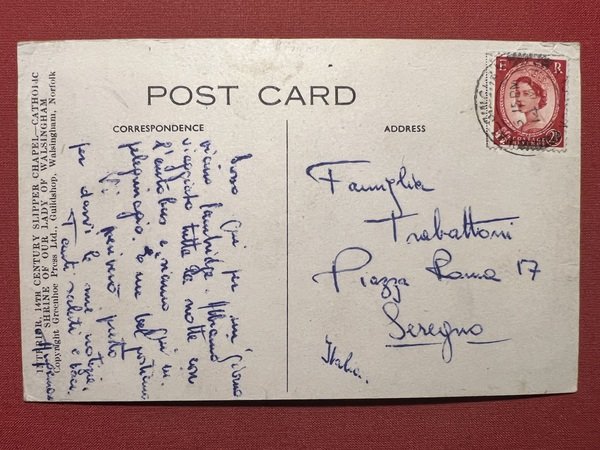 POST CARD
CORRESPONDENCE
ADDRESS
INTERIOR, 14TH CENTURY SLIPPER CHAPEL—CATHOLIC
SHRINE OF OUR LADY OF WALSINGHAM
Copyright Greenhoe Press Ltd., Guildshop, Walsingham, Norfolk
Sono qui per un giorno
vicino Cambridge. Abbiamo
viaggiato tutta la notte con
l'autobus e siamo qui in
pelegrinagio. È un bel
Vi scriverò presto
per darvi le mie notizie.
Tanti saluti e baci
Famiglia
Trabattoni
Piazza Roma 17
Seregno
Italia.
E R
POSTAGE
2½